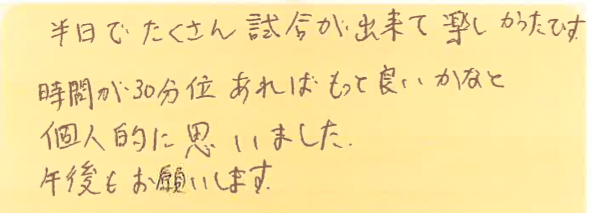 半日でたくさん試合が出来て楽しかったです
時間が30分位あればもっと良いかなと
個人的に思いました.
午後もお願いします.